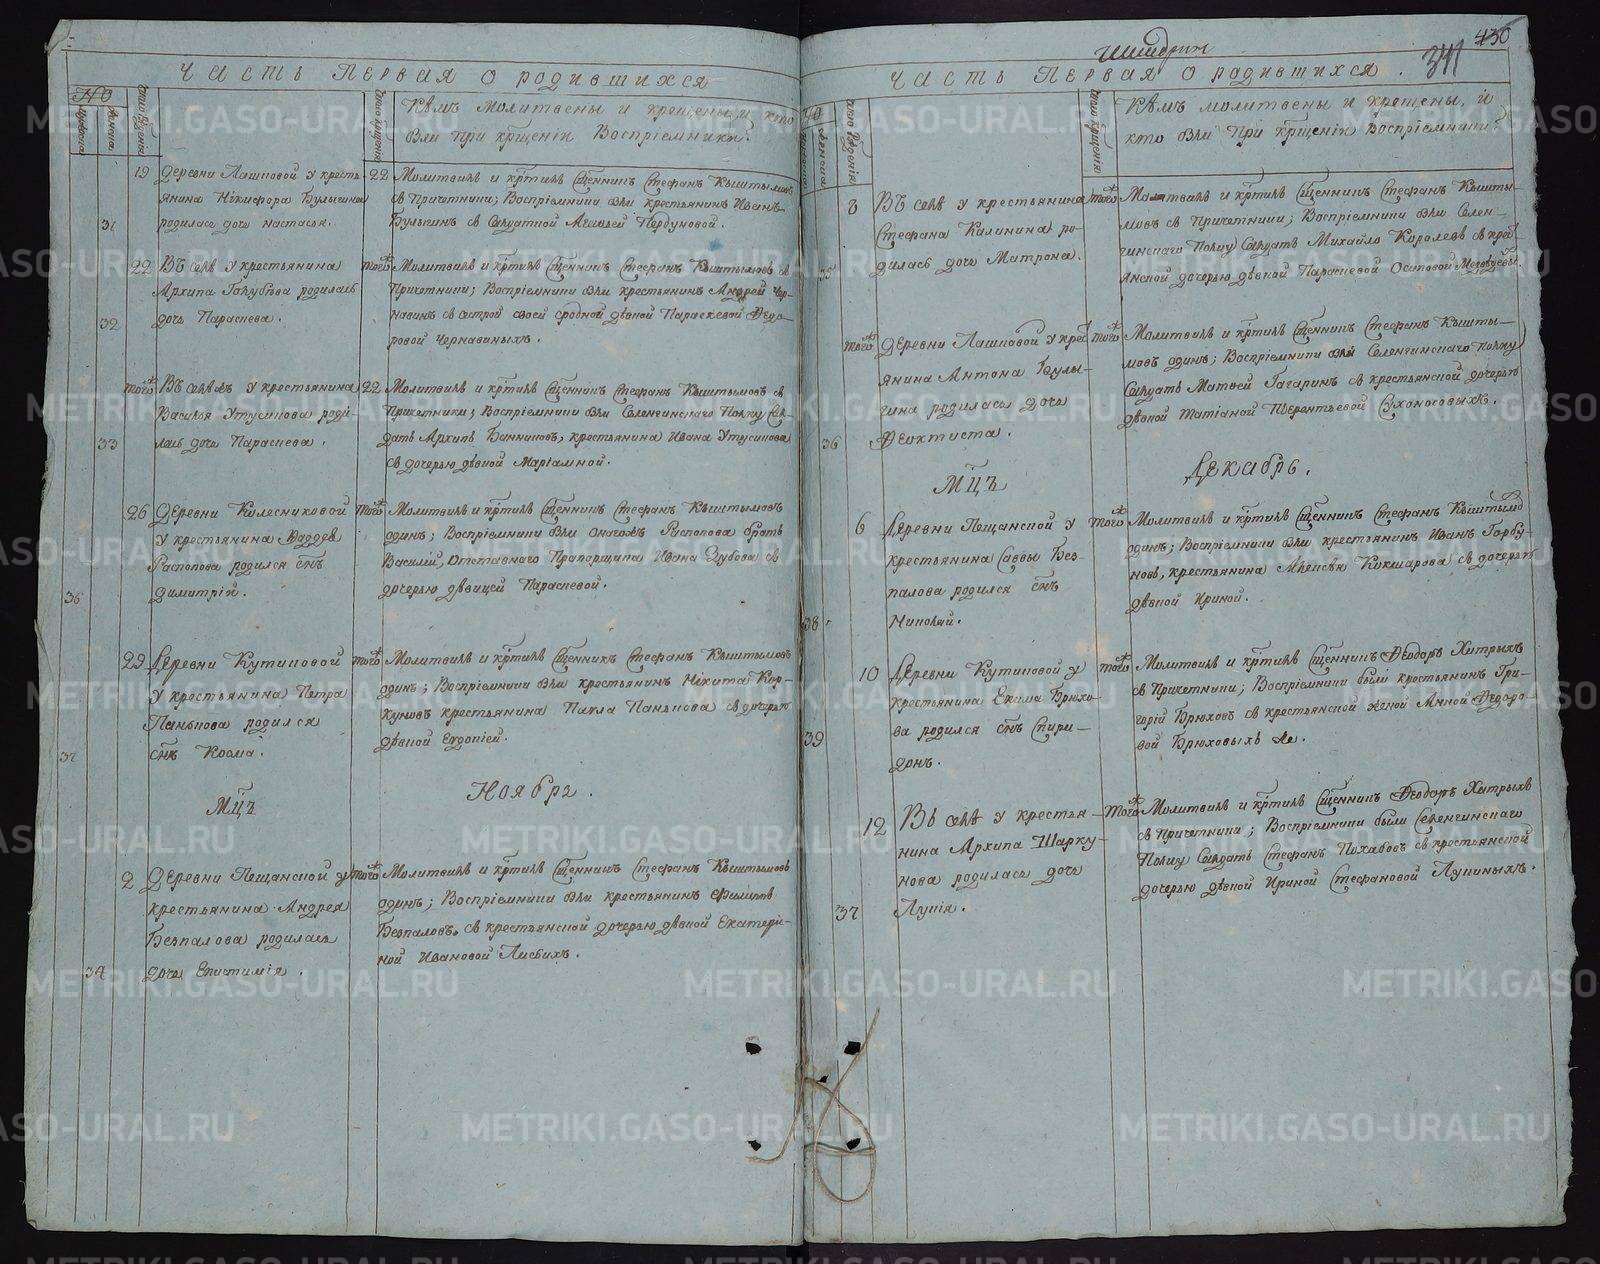 Часть Первая о родившихся
НО
Мужеска
Женска
Число Рождения
Число крещения
Кемъ молитвены и крещены, и кто
были при крщеніи Воспріемники?
31
19
деревни Лашковой у кресть
янина Нікифора Булыгина
родилась дочь настасья.
22
Молитвилъ и кртилъ Сщенникъ Стефанъ Кыштымовъ
съ Причетники; Воспріемники были крестьянинъ Иванъ
Булыгинъ съ Солдаткой
32
22
Въ селѣ у крестьянина
Архипа Голубева родилась
дочь Параскева.
того
Молитвилъ и кртилъ Сщенникъ Стефанъ Кыштымовъ съ
Причетники; Воспріемники были крестьянинъ Андрей Чер-
навинъ съ сестрой своей сродной дѣвкой Параскевой Федо-
ровой Чернавиныхъ.
33
того
Въ селѣ у крестьянина
Василья Утусикова роди-
лась дочь Параскева.
22
Молитвилъ и кртилъ Сщенникъ Стефанъ Кыштымовъ съ
Причетники; Воспріемники были Селенгинскаго Полку Сол-
датъ Архипъ Банниковъ, крестьянина Ивана Утусикова
съ дочерью дѣвкой Маріамной.
36
26
Деревни Колесниковой
у крестьянина
Распопова родился снъ
Димитрій.
того
Молитвилъ и кртилъ Сщенникъ Стефанъ Кыштымовъ
одинъ; Воспріемники были онагожъ Распопова братъ
Василій, Отставнаго Прапорщика Ивана Зубова съ
дочерью дѣвицей Параскевой.
37
29
Деревни Кутиковой
у крестьянина Петра
Панькова родился
снъ Козма.
того
Молитвилъ и кртилъ Сщенникъ Стефанъ Кыштымовъ
одинъ; Воспріемники были крестьянинъ Нікита Кор-
куновъ крестьянина Павла Панькова съ дочерью
дѣвкой Евдокіей.
Мцъ Ноябрь.
34
2
Деревни Пещанской у
крестьянина Андрея
Безпалова родилась
дочь Епистимія.
того
Молитвилъ и кртилъ Сщенникъ Стефанъ Кыштымовъ
одинъ; Воспріемники были крестьянинъ Филипъ
Безпаловъ съ крестьянской дочерью дѣвкой Екатери-
ной Ивановой Лисьихъ.
430
341
Часть Первая о родившихся.
НО
Женска
Число Рожденія
Число крещенія
Кемъ молитвены и крещены, и
кто были при крщеніи Воспріемники?
35
8
Въ селѣ у крестьянина
Стефана Калинина ро-
дилась дочь Матрона.
того
Молитвилъ и кртилъ Сщенникъ Стефанъ Кышты-
мовъ съ Причетники; Воспріемники были Селен-
гинскаго Полку Солдатъ Михайло Королевъ съ крест
янской дочерью дѣвкой Параскевой Осиповой
36
того
Деревни Лашковой у крест
янина Антона Булы-
гина родилась дочь
Феоктиста.
того
Молитвилъ и кртилъ Сщенникъ Стефанъ Кышты-
мовъ одинъ; Воспріемники были Селенгинскаго полку
Солдатъ Матвей Гагаринъ съ крестьянской дочерью
дѣвкой Татіаной Терентьевой Сухоносовыхъ.
Мцъ Декабрь.
38
6
Деревни Пещанской у
крестьянина Саввы Без-
палова родился снъ
Николай.
того
Молитвилъ и кртилъ Сщенникъ Стефанъ Кыштымо
одинъ; Воспріемники были крестьянинъ Иванъ Горбу-
новъ, крестьянина Алексѣя Кокшарова съ дочерью
дѣвкой Ириной.
39
10
Деревни Кутиковой у
крестьянина Екима Брюхо-
ва родился снъ Спири-
донъ.
того
Молитвилъ и кртилъ Сщенникъ Феодоръ Хитрыхъ
съ Причетники; Воспріемники были крестьянинъ Гри-
горій Брюховъ съ крестьянской женой Анной Федоро-
вой Брюховыхъ же.
37
12
Въ селѣ у крестья-
нина Архипа Шарку-
нова родилась дочь
Лукія.
того
Молитвилъ и кртилъ Сщенникъ Феодоръ Хитрыхъ
съ Причетники; Воспріемники были Селенгинскаго
Полку Солдатъ Стефанъ Похабовъ съ крестьянской
дочерью дѣвкой Ириной Стефановой Лукиныхъ.
METRIKI.GASO-URAL.RU